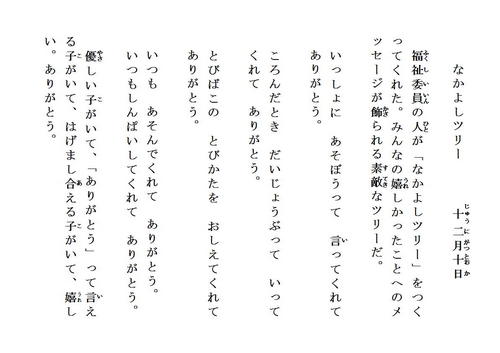 なかよしツリー　十二月十日
じゅうにがつとおか
福祉委員の人が「なかよしツリー」をつく
ふくしいいん ひと
ってくれた。みんなの嬉しかったことへのメ
うれ
ッセージが飾られる素敵なツリーだ。
かざ すてき
いっしょに　あそぼうって　言ってくれて
い
ありがとう。
ころんだとき　だいじょうぶって　いって
くれて　ありがとう。
とびばこの　とびかたを　おしえてくれて
ありがとう。
いつも　あそんでくれて　ありがとう。
いつもしんぱいしてくれて　ありがとう。
優しい子がいて、「ありがとう」って言え
やさ こ い
る子がいて、はげまし合える子がいて、嬉し
こ あ こ うれ
い。ありがとう。